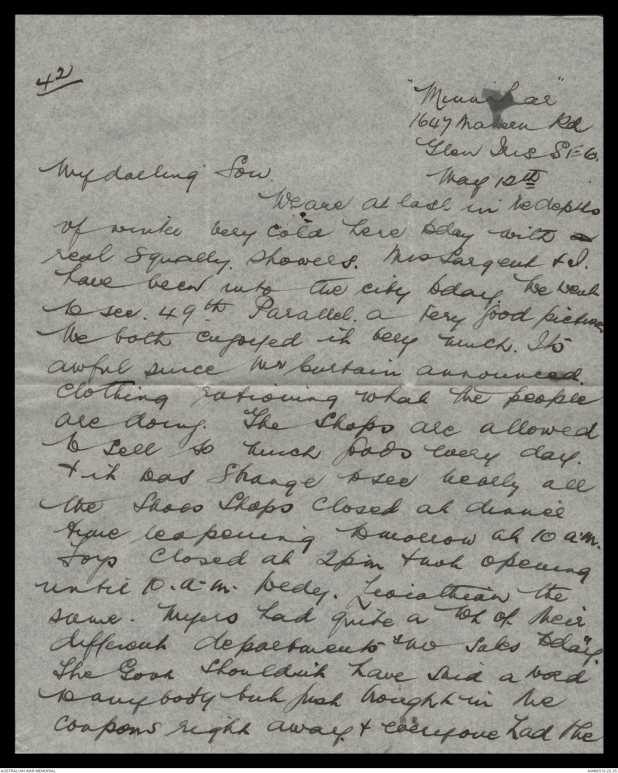 42
"Minn
1647 Malvern Rd
Glen Iris S.E.6.
May 12th
My darling Son.
We are at last in the depths
of winter very cold here today with
real squally showers. Mrs Sargent & I.
have been into the city today. We went
to see. 49th Parallel. a very good picture
We both enjoyed it very much. Its
awful since Mr Curtain announced
clothing rationing what the people
are doing. The shops are allowed
to sell so much goods every day.
& it was strange to see nearly all
the Shoes Shops closed at dinner
time reopening tomorrow at 10 a.m.
Foys closed at 2pm & not opening
until 10.a.m. Wedy. Leviathian the
same. Myers had quite a lot of their
different departments "No Sales Today".
The Govt shouldnt have said a word
to anybody but just brought in the
coupons right away & everyone had the
AUSTRALIAN WAR MEMORIAL